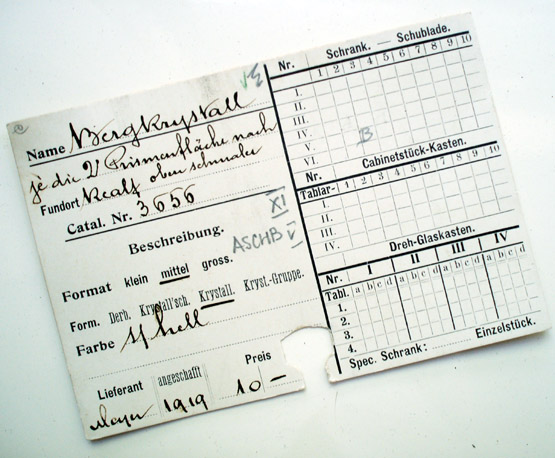 Name Bergkrystall
je die 2) Prismenfläche nach
Fundort Realp oben schmaler
Catal. Nr. 3656
XI
Beschreibung.
ASCHB V
Format klein mittel gross.
Form. Derb. Kryställ'sch. Krystall. Kryst.-Gruppe.
Farbe hell
Lieferant angeschafft Preis
Meyer 1919 10 –
Nr. Schrank. — Schublade.
1 2 3 4 5 6 7 8 9 10
I.
II.
III.
IV.
V.
VI.
B
Nr. Cabinetstück-Kasten.
Tablar- 1 2 3 4 5 6 7 8 9 10
I.
II.
III.
IV.
Dreh-Glaskasten.
Nr. I II III IV
Tabl. a b c d a b c d a b c d a b c d
1.
2.
3.
4.
Spec. Schrank: Einzelstück.